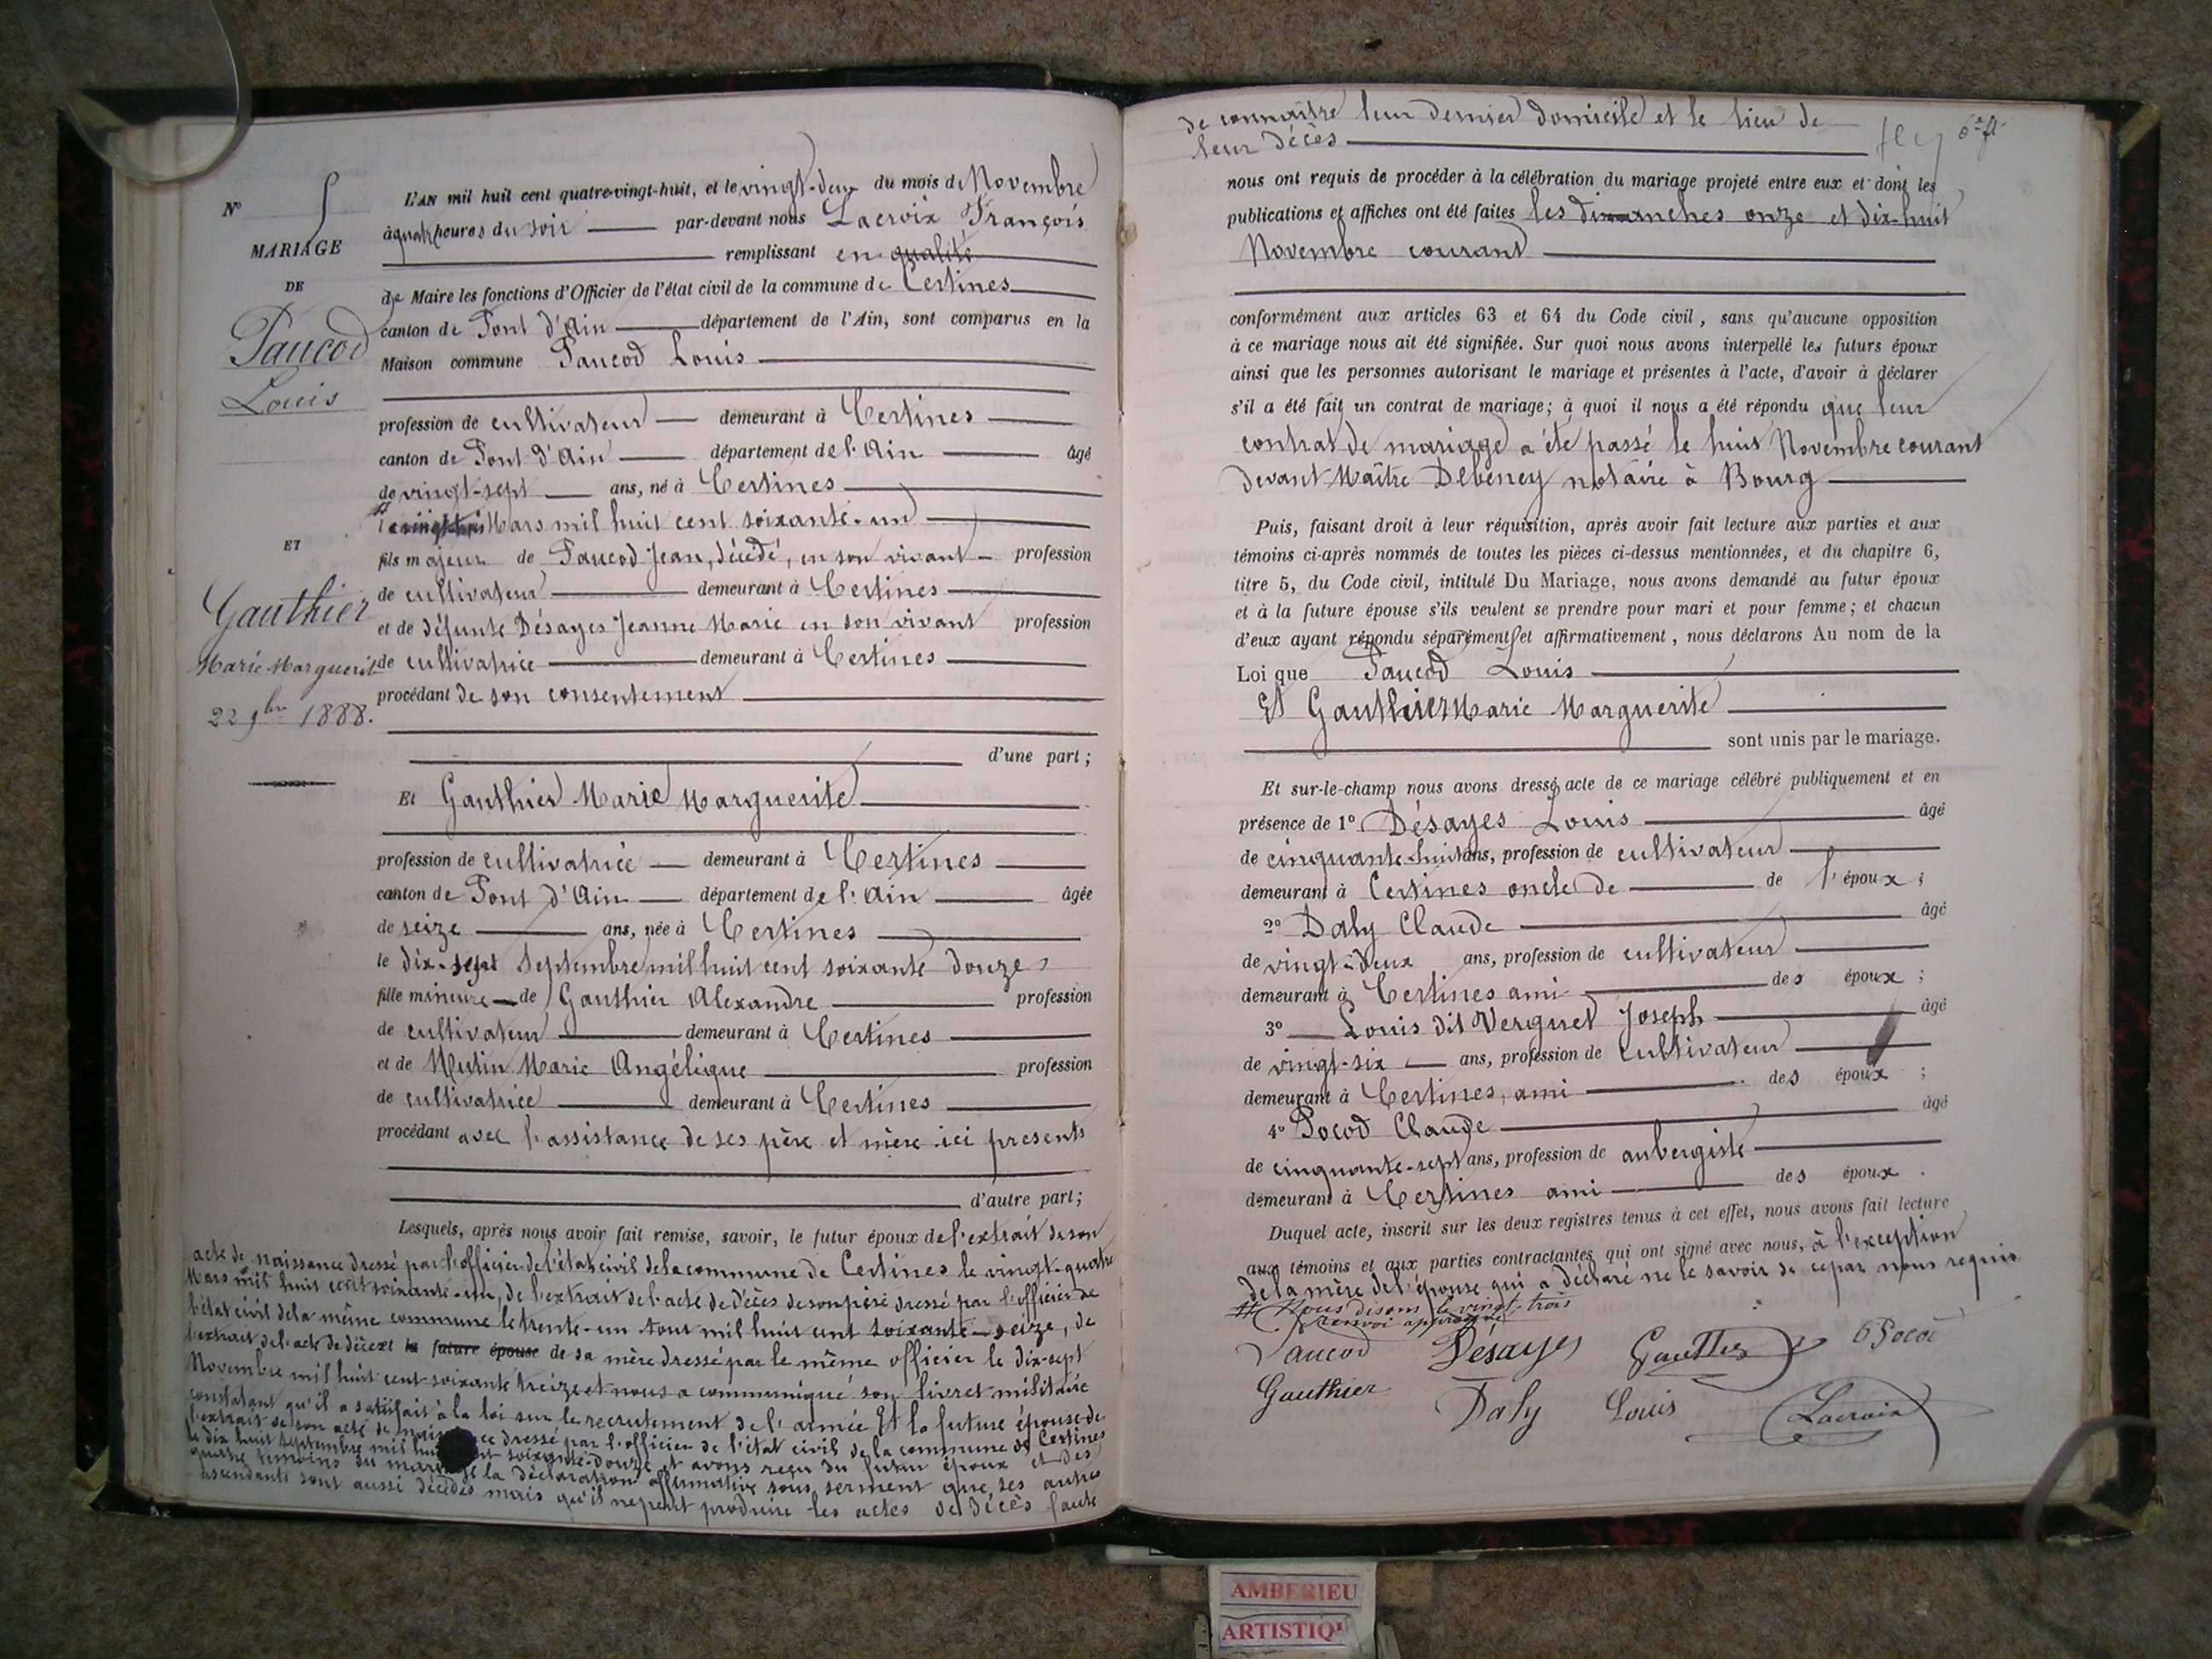 N°
MARIAGE
DE
Paucod
Louis
ET
Gauthier
Marie Marguerite
22 9bre 1888.
L'AN mil huit cent quatre-vingt-huit, et le vingt-deux du mois de Novembre
à quatre heures du soir par-devant nous Lacroix François
remplissant en qualité
de Maire les fonctions d'Officier de l'état civil de la commune de Certines
canton de Pont d'Ain département de l'Ain, sont comparus en la
Maison commune Paucod Louis
profession de cultivateur demeurant à Certines
canton de Pont d'Ain département de l'Ain âgé
de vingt-sept ans, né à Certines
Mars mil huit cent soixante-un
fils majeur de Paucod Jean, décédé, en son vivant profession
de cultivateur demeurant à Certines
et de défunte Désayes Jeanne Marie en son vivant profession
de cultivatrice demeurant à Certines
procédant de son consentement
d'une part;
Et Gauthier Marie Marguerite
profession de cultivatrice demeurant à Certines
canton de Pont d'Ain département de l'Ain âgée
de seize ans, née à Certines
le dix-sept Septembre mil huit cent soixante douze
fille mineure de Gauthier Alexandre profession
de cultivateur demeurant à Certines
et de Mutin Marie Angélique profession
de cultivatrice demeurant à Certines
procédant avec l'assistance de ses père et mère ici présents
d'autre part;
Lesquels, après nous avoir fait remise, savoir, le futur époux de l'extrait de son
acte de naissance dressé par l'officier de l'état civil de la commune de Certines le vingt-quatre
Mars mil huit cent soixante-un, de l'extrait de l'acte de décès de son père dressé par l'officier de
l'état civil de la même commune le trente-un Aout mil huit cent soixante-seize, de
l'extrait de l'acte de décext la future épouse de sa mère dressé par le même officier le dix-sept
Novembre mil huit cent soixante treize et nous a communiqué son livret militaire
constatant qu'il a satisfait à la loi sur le recrutement de l'armée Et la future épouse de
l'extrait de son acte de naissance dressé par l'officier de l'état civil de la commune de Certines
le dix huit Septembre mil huit cent soixante-douze, et avons reçu du futur époux et des
quatre témoins du mariage la déclaration affirmative sous serment que ses autres
ascendants sont aussi décédés mais qu'il ne peut produire les actes de décès faute
de connaître leur dernier domicile et le lieu de
leur décès
nous ont requis de procéder à la célébration du mariage projeté entre eux et dont les
publications et affiches ont été faites les dimanches onze et dix-huit
Novembre courant
conformément aux articles 63 et 64 du Code civil, sans qu'aucune opposition
à ce mariage nous ait été signifiée. Sur quoi nous avons interpellé les futurs époux
ainsi que les personnes autorisant le mariage et présentes à l'acte, d'avoir à déclarer
s'il a été fait un contrat de mariage; à quoi il nous a été répondu que leur
contrat de mariage a été passé le huit Novembre courant
devant Maître Debeney notaire à Bourg
Puis, faisant droit à leur réquisition, après avoir fait lecture aux parties et aux
témoins ci-après nommés de toutes les pièces ci-dessus mentionnées, et du chapitre 6,
titre 5, du Code civil, intitulé Du Mariage, nous avons demandé au futur époux
et à la future épouse s'ils veulent se prendre pour mari et pour femme; et chacun
d'eux ayant répondu séparément et affirmativement, nous déclarons Au nom de la
Loi que Paucod Louis
Et Gauthier Marie Marguerite
sont unis par le mariage.
Et sur-le-champ nous avons dressé acte de ce mariage célébré publiquement et en
présence de 1° Désayes Louis âgé
de cinquante-huit ans, profession de cultivateur
demeurant à Certines oncle de de l'époux;
2° Daly Claude âgé
de vingt-deux ans, profession de cultivateur
demeurant à Certines ami des époux;
3° Louis dit Verguet Joseph âgé
de vingt-six ans, profession de cultivateur
demeurant à Certines, ami des époux;
4° Pocod Claude âgé
de cinquante-sept ans, profession de aubergiste
demeurant à Certines ami des époux.
Duquel acte, inscrit sur les deux registres tenus à cet effet, nous avons fait lecture
aux témoins et aux parties contractantes qui ont signé avec nous, à l'exception
de la mère de l'épouse qui a déclaré ne le savoir de ce par nous requis
# Nous disons le vingt-trois
renvoi approuvé
Paucod Désayes Gauthier Pocod
Gauthier Daly Louis Lacroix
AMBERIEU
ARTISTIQ